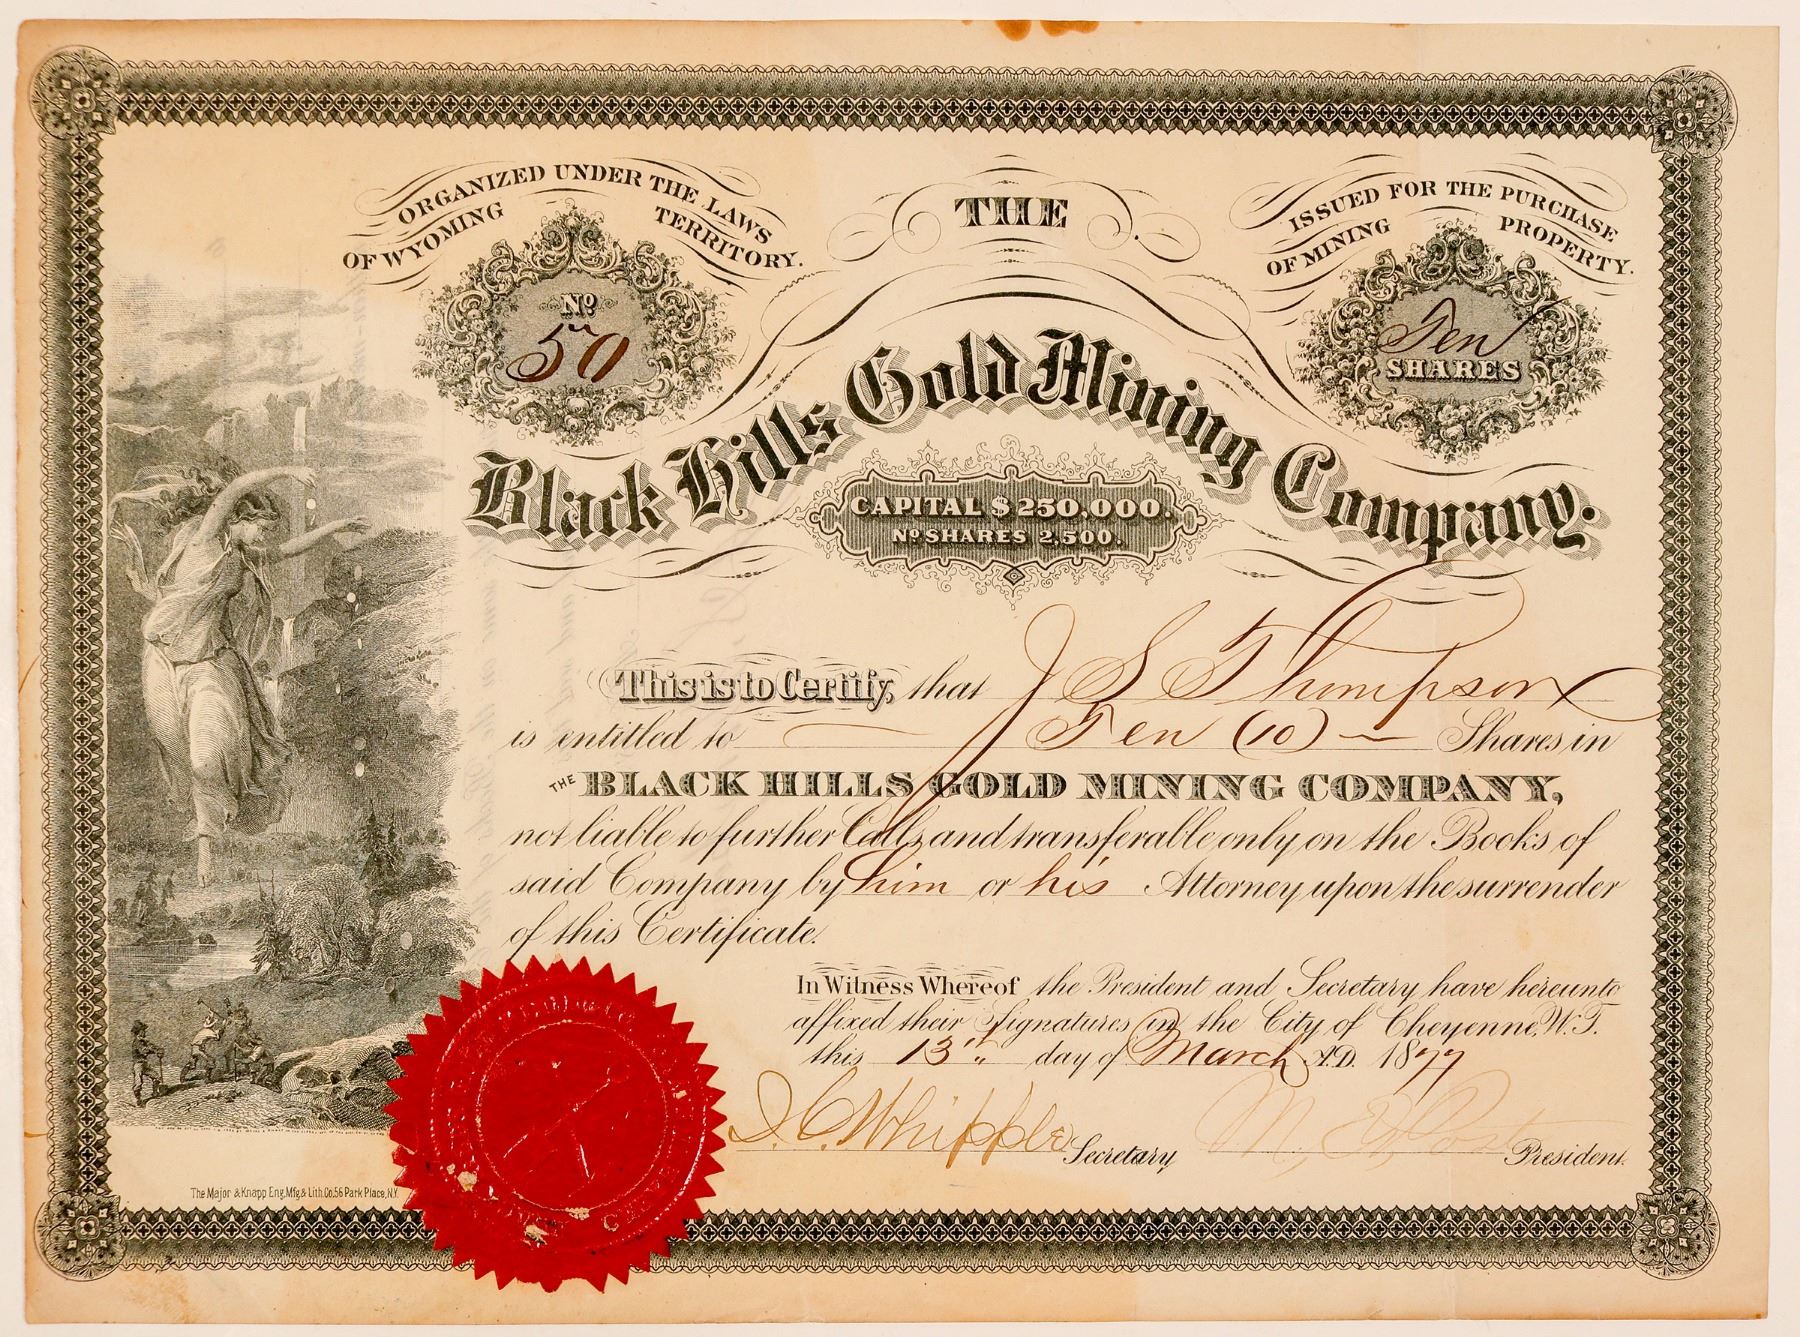 ORGANIZED UNDER THE LAWS
OF WYOMING TERRITORY.
No
50
THE
ISSUED FOR THE PURCHASE
OF MINING PROPERTY.
Ten
SHARES
Black Hills Gold Mining Company.
CAPITAL $250,000.
No SHARES 2,500.
This is to Certify, that J S Thompson
is entitled to Ten (10) Shares in
THE BLACK HILLS GOLD MINING COMPANY,
not liable to further Calls, and transferable only on the Books of
said Company by him or his Attorney upon the surrender
of this Certificate.
In Witness Whereof the President and Secretary have hereunto
affixed their Signatures in the City of Cheyenne, W.T.
this 13th day of March A.D. 1877
I. C. Whipple Secretary M. E. Post President.
The Major & Knapp Eng. Mfg & Lith. Co. 56 Park Place, N.Y.